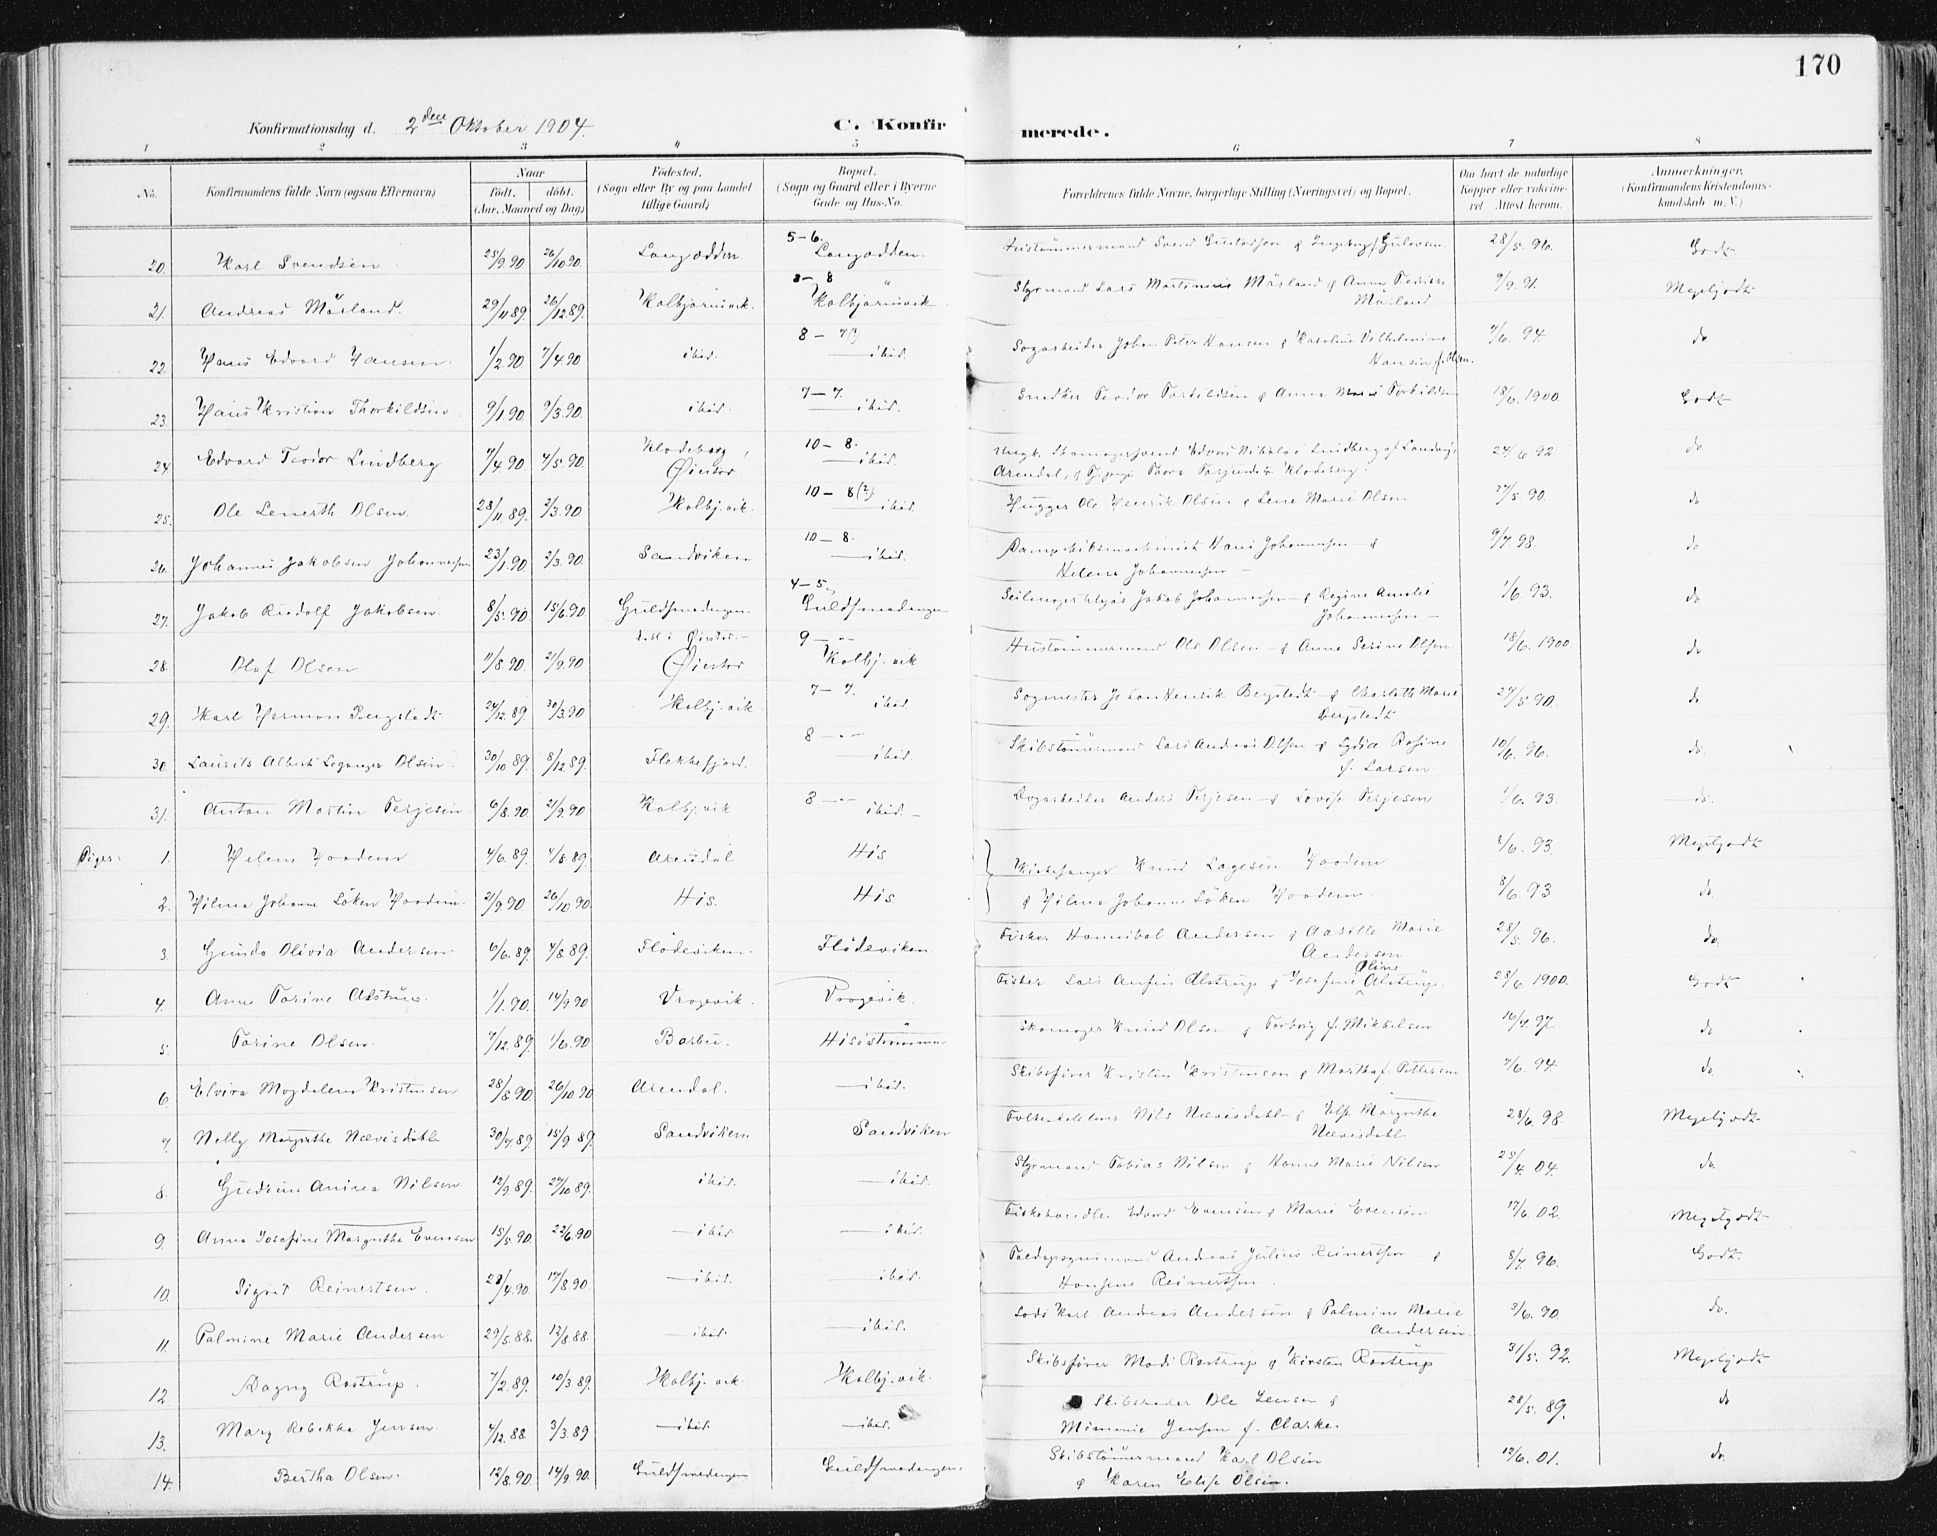 170
Konfirmationsdag d. 2den Oktober 1904.
C. Konfirmerede.
1 2 3 4 5 6 7 8
No. Konfirmandens fulde Navn (ogsaa Efternavn) Naar födt. döbt. (Aar, Maaned og Dag) Födested. (Sogn eller By og paa Landet tillige Gaard) Bopæl. (Sogn og Gaard eller i Byerne Gade og Hus-No. Forældrenes fulde Navne, borgerlige Stilling (Næringsvei) og Bopæl. Om havt de naturlige Kopper eller vakcineret. Attest herom. Anmærkninger. (Konfirmandens Kristendomskundskab m. V.)
20. Karl Svendsen 25/9.90 26/10.90 Langodden 5-6. Langodden. 28/5. 96. Godt
21. Andreas Mörland. 29/11.89. 26/12.89. Kolbjørnsvik. 3-8 Kolbjørnsvik Styrmand Lars Martinius Mörland & Anne Mörland 9/9. 91. Megetgodt
22. Hans Edvard Hansen. 1/2.90 7/4.90 ibid. 8- ibid. Johan Peter Hansen & Karoline Vilhelmine Hansen f. Olsen. 7/6. 94. do
23. Hans Kristian Thorkildsen. 9/1.90 9/3.90 ibid. 7-7. ibid. Snedker Teodor Torkildsen & Anne Marie Torkildsen 18/6. 1900 Godt
24 Edvard Teodor Lindberg 7/4.90 4/5.90 Klodeborg, Øiestad 10-8. ibid. Ungk. Edvard Nikolai Lindberg af Arendal, & Pige Klodeborg. 24/6 92 do
25. Ole Lenerth Olsen. 28/11.89. 2/3.90 Kolbj.vik. 10-8(2). ibid. Hugger Ole Henrik Olsen & Lene Marie Olsen 27/5. 90. do
26. Johannes Jakobsen Johannesen 23/1.90. 2/3.90. Sandviken 10-8. ibid. Dampskibsmaskinist Hans Johannesen & Helene Johannesen 9/7. 98. do
27. Jakob Rudolf Jakobsen 8/5.90 15/6.90 Guldsmedengen 4-5. Guldsmedengen Seilmager Jakob Johannesen & Regine Amalie Johannesen 1/6. 93. do
28. Olaf Olsen 11/8.90. 21/9.90 döbt i Øiestad. Øiestad 9- Kolbj.vik Hustömmermand Ole Olsen & Anne Serine Olsen 18/6. 1900 do
29. Karl Herman Bergstedt 24/12.89. 30/3.90 Kolbj.vik 7-7. ibid. Sagmester Johan Henrik Bergstedt & Charlotte Marie Bergstedt 27/5. 90. do
30. Laurits Albert Olsen. 30/10.89. 8/12.89. Flekkefjord. 8 ibid. Skibstömmermand Lars Andreas Olsen & Lydia Rosine f. Larsen. 10/6. 96. do.
31. Anton Martin Terjesen 6/8.90. 21/9.90 Kolbj.vik 8 ibid. Anders Terjesen & Lovise Terjesen. 1/6. 93. do.
Piger: 1. Helene Haaden 4/6.89. 4/8.89. Arendal His Kirkesanger Knud Lagesen Haaden 8/6. 93. Megetgodt
2. Hilma Johanne Löken Haaden 21/9.90. 26/10.90. His. His & Hilma Johanne Löken Haaden. 8/6. 93 do.
3. Gunda Olivia Andersen 6/6.89. 4/8.89. Flödeviken. Flödeviken. Fisker Hannibal Andersen & Aasille Marie Andersen 28/5. 96. do.
4. Anne Torine Alstrup. 1/1.90. 14/9.90 Vragevik. Vragevik. Fisker Lars Anfin Alstrup & Josefine Oline Alstrup. 28/6 1900. Godt
5. Torine Olsen. 7/12.89. 1/6.90 Barbu. Hisöströmmen Skomager Knud Olsen & Torborg f. Mikkelsen 16/7. 97. do
6. Elvira Magdalene Kristensen 28/8.90. 26/10.90 Arendal. ibid. Skibsfører Kristen Kristensen & Martha f. Pettersen 7/6. 94. do.
7. Nelly Margrethe Nævisdahl 30/7.89. 15/9.89. Sandviken. Sandviken. Nils Nævisdahl & Else Margrethe Nævisdahl 28/6. 98. Megetgodt
8. Gudrun Anirea Nilsen 12/9.89. 27/10.89. ibid. ibid. Styrmand Tobias Nilsen & Hanne Marie Nilsen. 25/4. 04. do.
9. Anna Josefine Margrethe Evensen 15/5.90. 22/6.90 ibid ibid. Fiskehandler Edvard Evensen & Marie Evensen 17/6. 02. Megetgodt
10. Sigrid Reinertsen. 28/4.90. 17/8.90. ibid. ibid. Andreas Julius Reinertsen & Hansene Reinertsen. 8/7. 96. Godt.
11. Palmine Marie Andersen 29/5.88. 12/8.88. ibid. ibid. Lods Karl Andreas Andersen & Palmine Marie Andersen. 3/6. 90. do.
12 Dagny Rostrup. 7/2.89. 10/3.89. Kolbj.vik Kolbj.vik. Skibsfører Mads Rostrup & Kirsten Rostrup 31/5. 92. Megetgodt
13. Mary Rebekka Jensen. 4/12.88 3/3.89 ibid. ibid. Skibsreder Ole Jensen & Mimmie Jensen f. Clarke. 28/5. 89. do
14. Bertha Olsen. 12/8.90. 14/9.90. Guldsmedengen Guldsmedengen. Skibstömmermand Karl Olsen & Karen Elise Olsen. 12/6. 01. do.